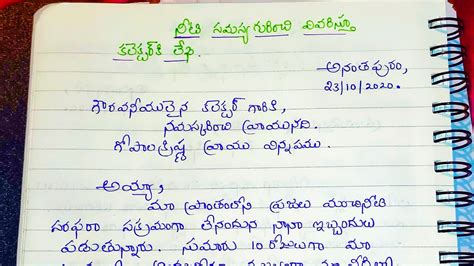 నీటి సమస్య గురించి వివరిస్తూ
కలెక్టర్‌కి లేఖ.
అనంతపురం,
23/10/2020.
గౌరవనీయులైన కలెక్టర్ గారికి,
నమస్కరించి వ్రాయునది.
గోపాలకృష్ణ వ్రాయు విన్నపము.
అయ్యా,
మా ప్రాంతంలోని ప్రజలు మంచినీటి
సరఫరా సక్రమంగా లేనందున నానా ఇబ్బందులు
పడుతున్నారు. సుమారు 10 రోజులుగా మా